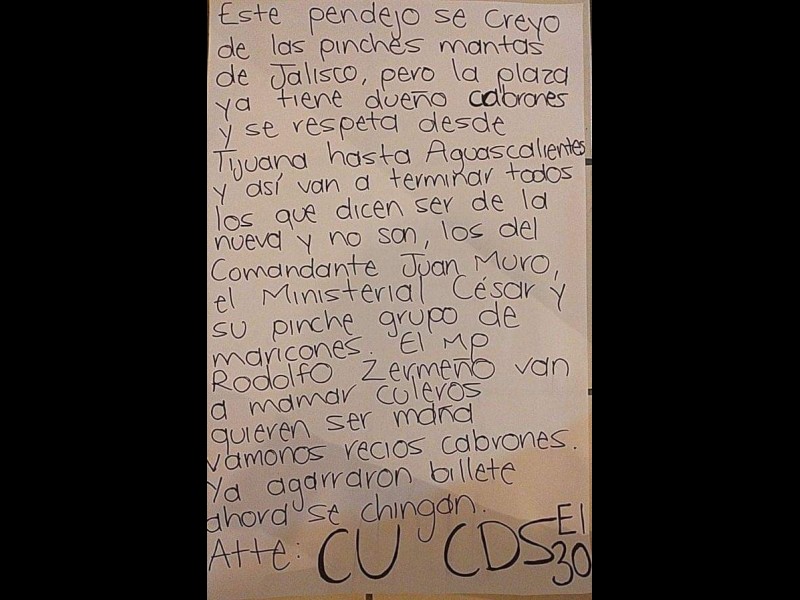 Este pendejo se creyo
de las pinches mantas
de Jalisco, pero la plaza
ya tiene dueño cabrones
y se respeta desde
Tijuana hasta Aguascalientes
y así van a terminar todos
los que dicen ser de la
nueva y no son, los del
Comandante Juan Muro,
el Ministerial César y
su pinche grupo de
maricones. El MP
Rodolfo Zermeño van
a mamar culeros
quieren ser maña
vámonos recios cabrones.
Ya agarraron billete
ahora se chingan.
Atte: CU CDS El 30